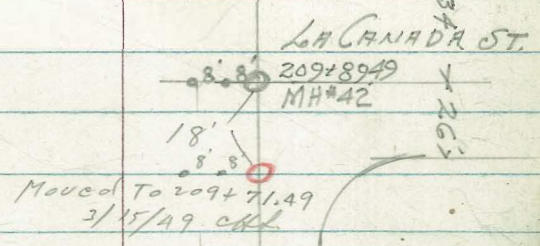 LA CANADA ST.
8' 8' 209+8949
MH#42
18'
8' 8'
Moved To 209+71.49
3/15/49
34 + 26'